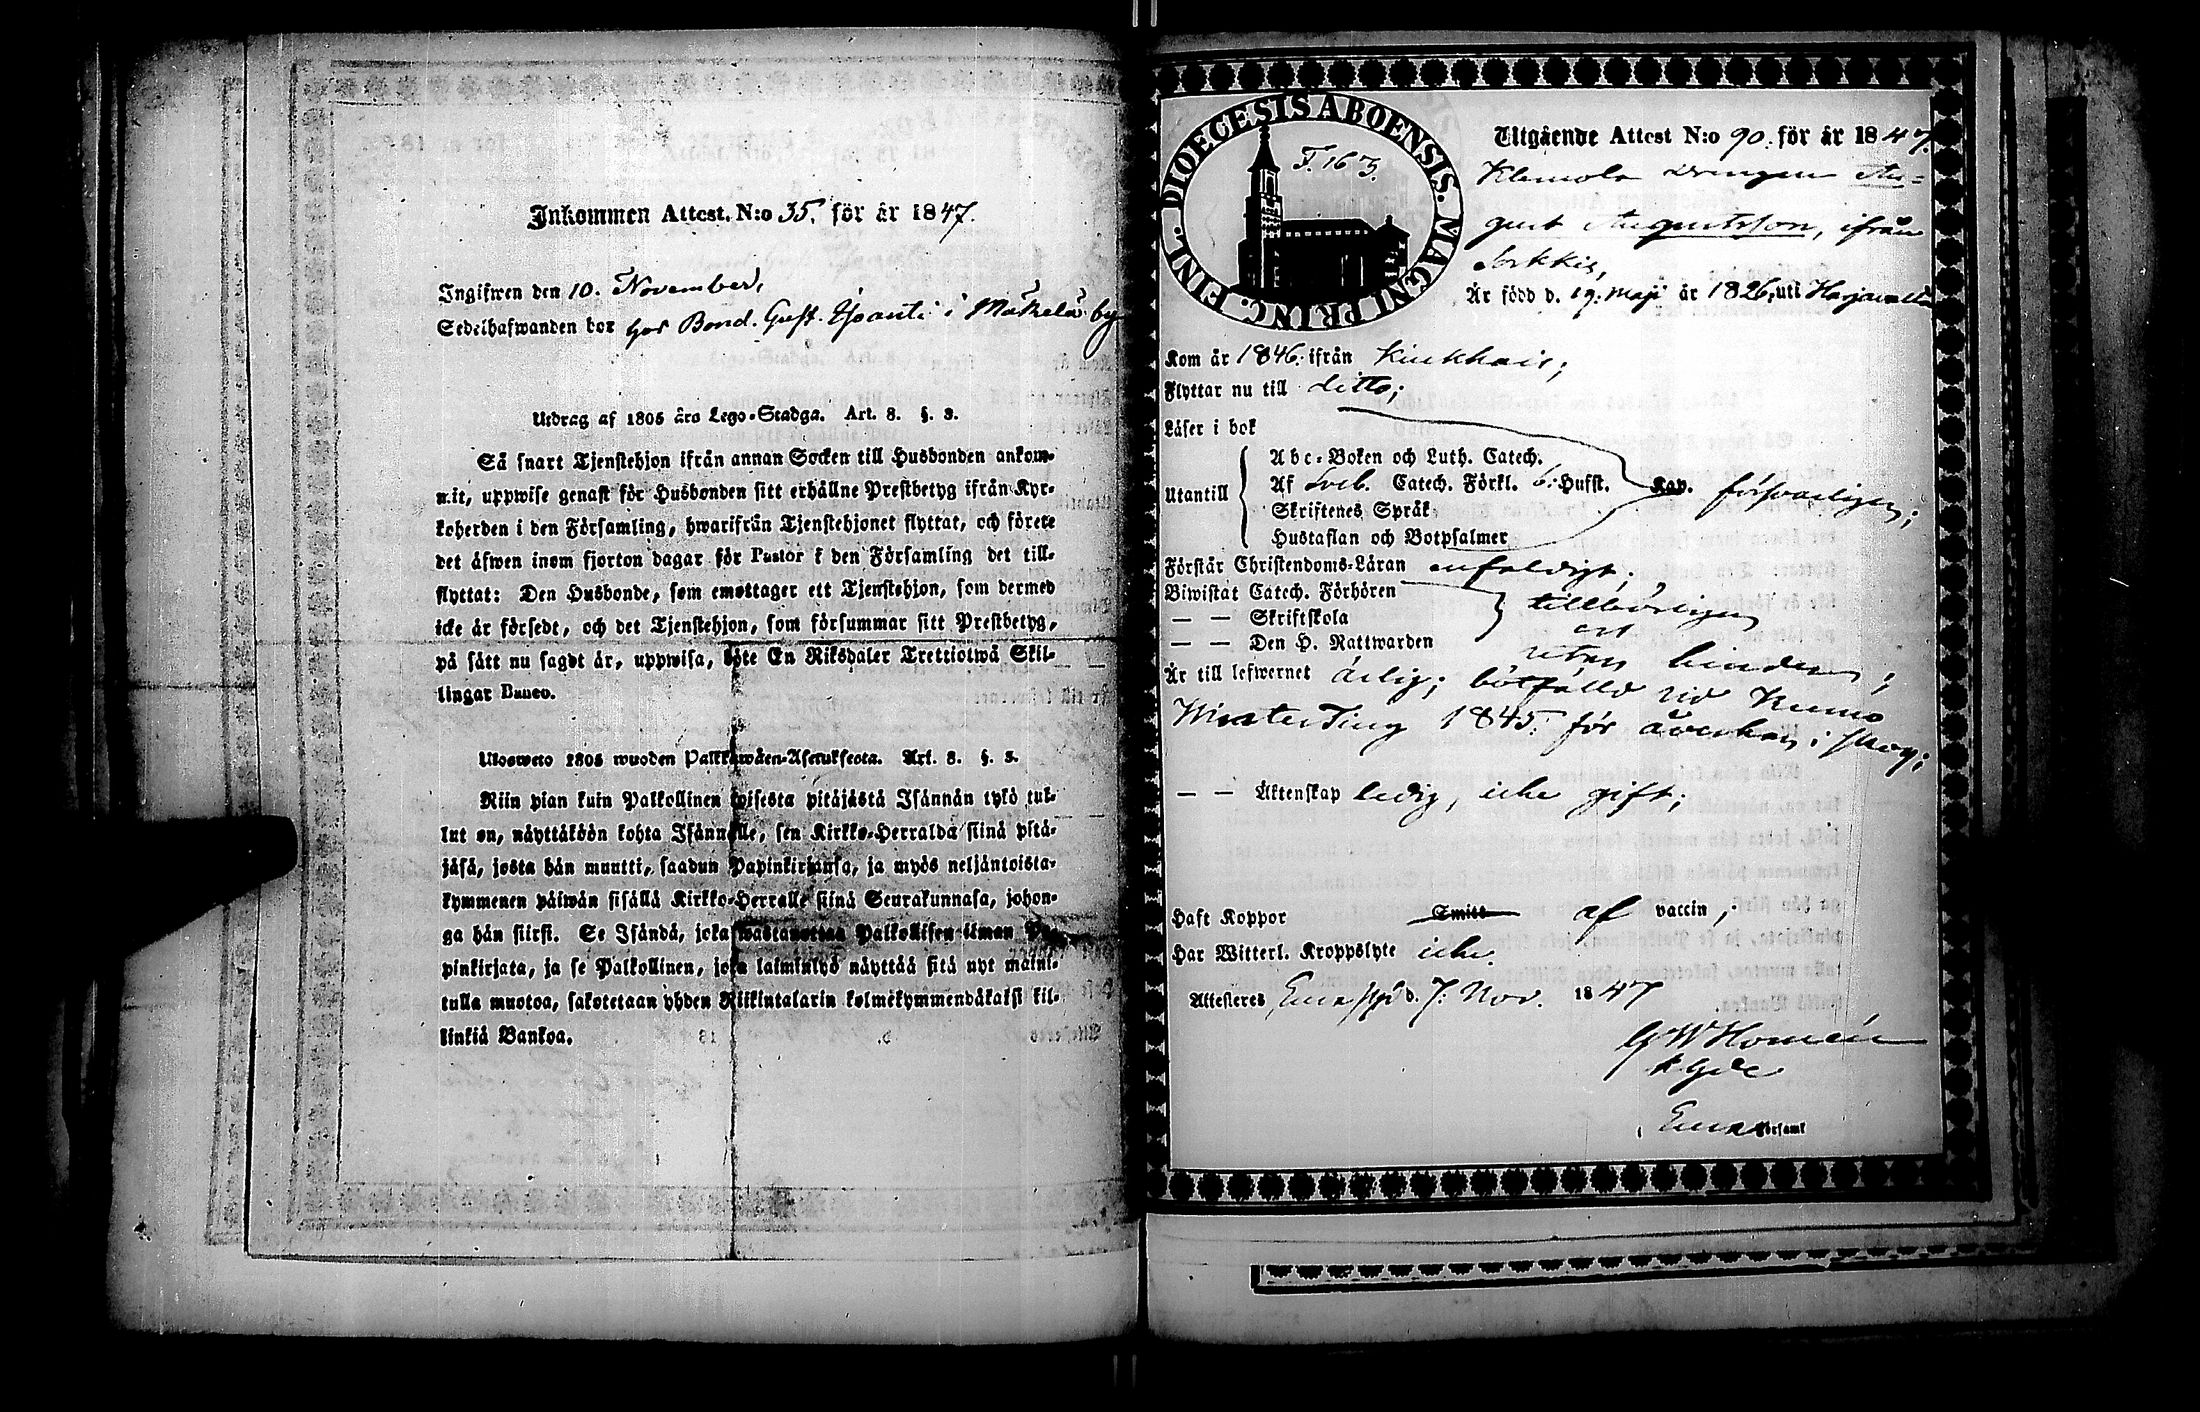 Inkommen Attest. N:o 35. för år 1847.
Ingifwen den 10. November,
Sedelhafwanden bor hos Bond. Gust. i Mäkelä by
Utdrag af 1805 års Lego-Stadga. Art. 8. §. 3.
Så snart Tjenstehjon ifrån annan Socken till Husbonden ankom-
mit, uppwise genast för Husbonden sitt erhållne Prestbetyg ifrån Kyr-
koherden i den Församling, hwarifrån Tjenstehjonet flyttat, och förete
det äfwen inom fjorton dagar för Pastor i den Församling det till-
flyttat: Den Husbonde, som emottager ett Tjenstehjon, som dermed
icke är försedt, och det Tjenstehjon, som försummar sitt Prestbetyg,
på sätt nu sagdt är, uppwisa, böte En Riksdaler Trettiotwå Skil-
lingar Banco.
Ulosweto 1805 wuoden Palkkawäen-Asetuksesta. Art. 8. §. 3.
Niin pian kuin Palkollinen toisesta pitäjästä Isännän tykö tul-
lut on, näyttäköön kohta Isännälle, sen Kirkko-Herralda siinä pitä-
jäsä, josta hän muutti, saadun Papinkirjansa, ja myös neljäntoista-
kymmenen päiwän sisällä Kirkko-Herralle siinä Seurakunnasa, johon-
ga hän siirsi. Se Isändä, joka wastanottaa Palkollisen ilman Pa-
pinkirjata, ja se Palkollinen, joka laiminlyö näyttää sitä nyt maini-
tulla muotoa, sakotetaan yhden Riikintalarin kolmekymmendäkaksi kil-
linkiä Bankoa.
DIOECESIS ABOENSIS. MAGNI PRINC. FINL.
F. 163.
Utgående Attest N:o 90. för år 1847.
Klemola drengen Au-
gust Augustsson, ifrån
Sorkkis,
Är född d. 19. Maji år 1826, uti Harjavalta
Kom år 1846. ifrån Kiukhais;
Flyttar nu till ditto;
Läser i bok
Utantill
Abc-Boken och Luth. Catech.
Af Sveb. Catech. Förkl. 6. Hufst. Kap. försvarligen;
Skriftenes Språk
Hustaflan och Botpsalmer
Förstår Christendoms-Läran enfaldigt;
Biwistat Catech. Förhören
— — Skriftskola tillbörligen
— — Den H. Nattwarden
och utan hinder;
Är till lefwernet ärlig; bötfälld vid Kumo
Winter Ting 1845. för åverkan i skog;
— — Äktenskap ledig, icke gift;
Haft Koppor Smitt af vaccin,
Har Witterl. Kroppslyte icke.
Attesteras Eura d. 7. Nov. 1847
G W Homén
Eura Församl